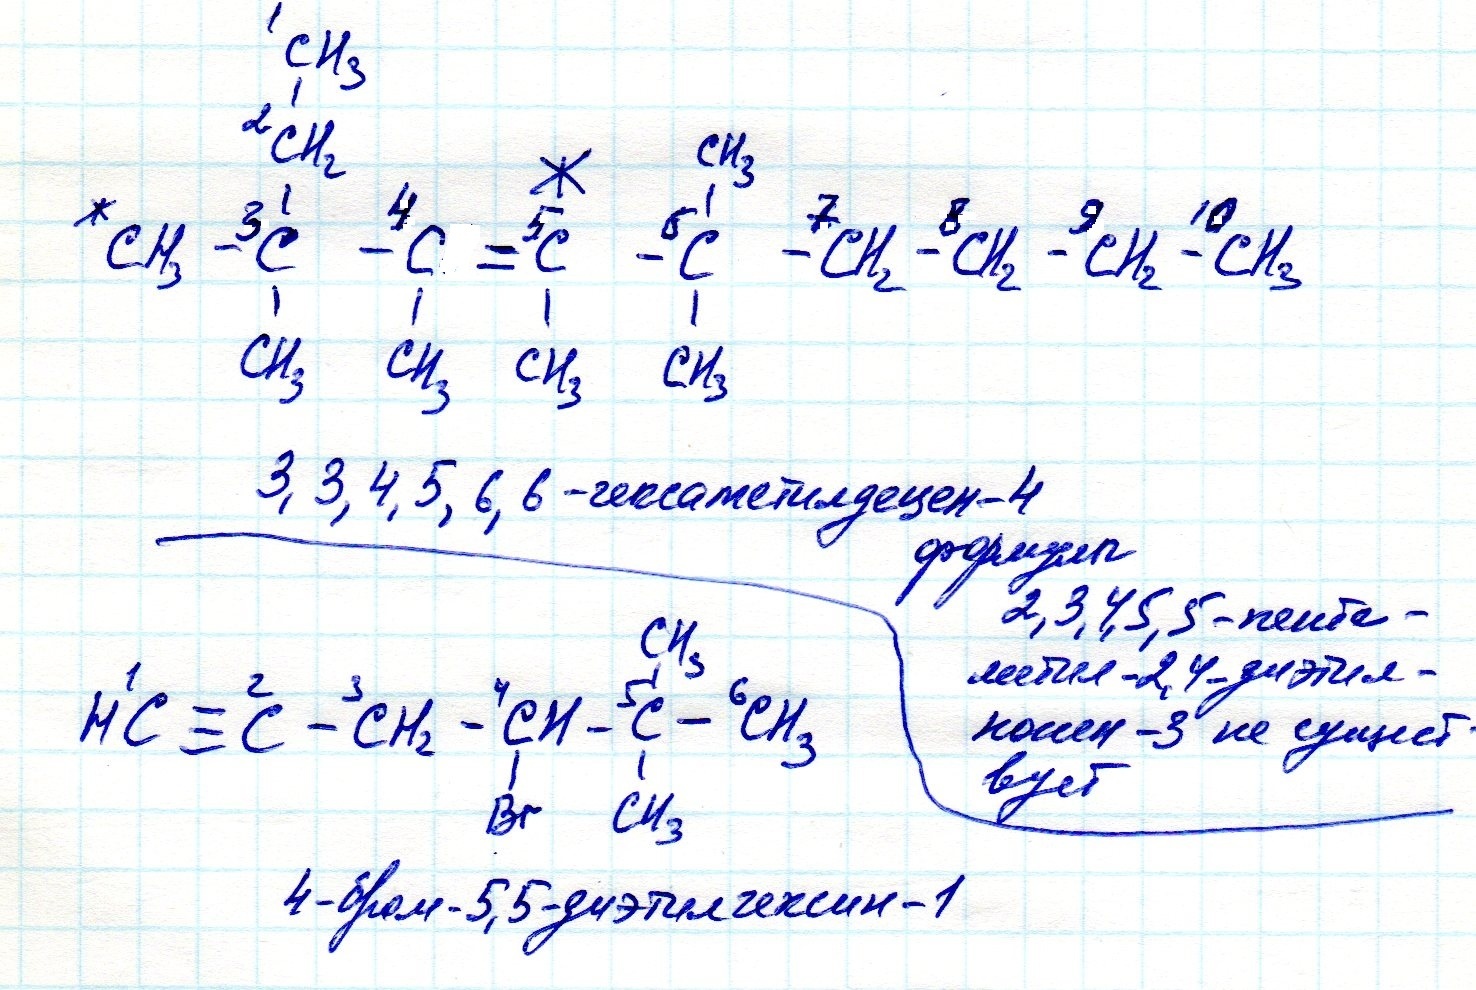 1
CH3
2 CH2
* CH3 - 3 C - 4 C = 5 C - 6 C - 7 CH2 - 8 CH2 - 9 CH2 - 10 CH3
*
CH3
CH3 CH3 CH3 CH3
3, 3, 4, 5, 6, 6 -гексаметилдецен-4
формулы
2,3,4,5,5-пента-
метил-2,4-диэтил-
нонен-3 не сущест-
вует
CH3
1 HC ≡ 2 C - 3 CH2 - 4 CH - 5 C - 6 CH3
Br CH3
4-бром-5,5-диэтилгексин-1